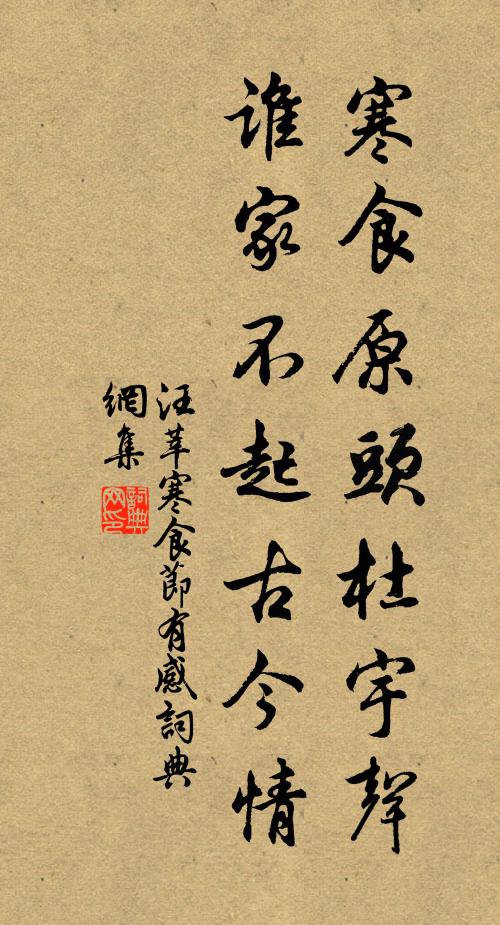 寒食原頭杜宇聲
誰家不起古今情
汪莘寒食節有感詞典
網集
詞典
网印